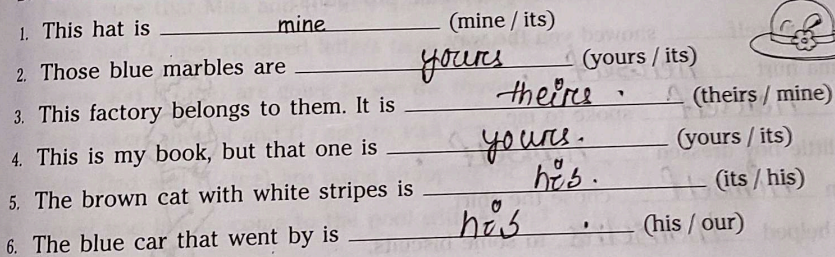 1. This hat is mine (mine / its)
2. Those blue marbles are yours (yours / its)
3. This factory belongs to them. It is theirs. (theirs / mine)
4. This is my book, but that one is yours. (yours / its)
5. The brown cat with white stripes is his. (its / his)
6. The blue car that went by is his. (his / our)